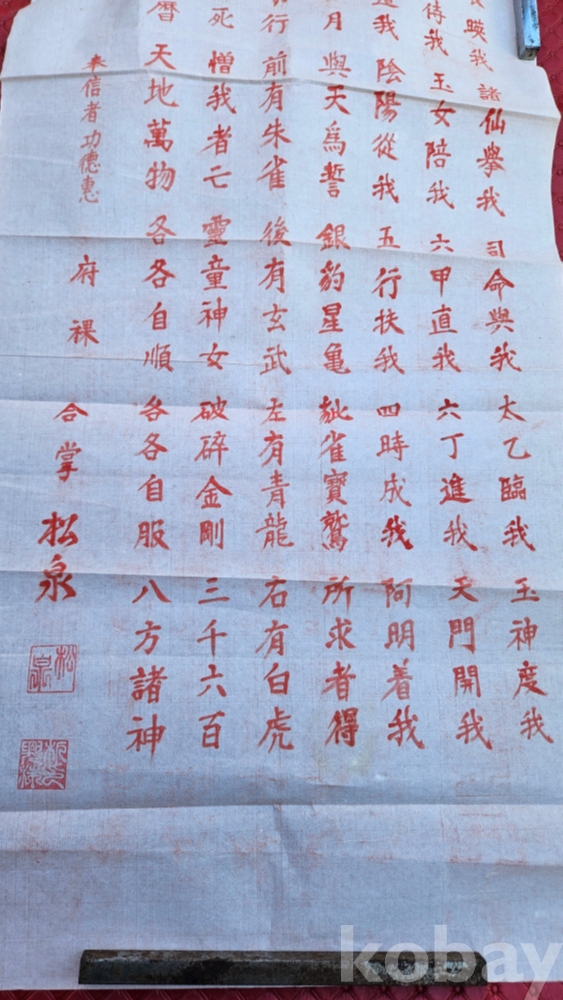 暎我 諸仙擧我 司命與我 太乙臨我 玉神度我
侍我 玉女陪我 六甲直我 六丁進我 天門開我
我 陰陽從我 五行扶我 四時成我 阿明着我
月 與天爲誓 銀豹星亀 雀寶鷲 所求者得
行 前有朱雀 後有玄武 左有青龍 右有白虎
死 憎我者亡 靈童神女 破碎金剛 三千六百
曆 天地萬物 各各自順 各各自服 八方諸神
奉信者功德惠
府 祼 合掌 松泉
松泉
kobay